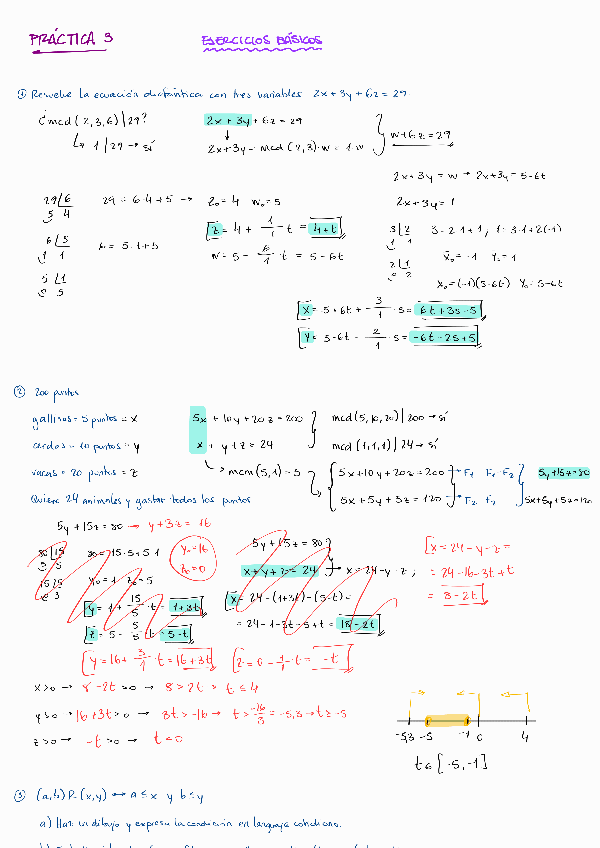 PRÁCTICA 3
EJERCICIOS BÁSICOS
① Resuelve la ecuación diofántica con tres variables 2x+3y+6z=29
¿mcd(2,3,6)|29?
↳ 1|29 → sí
2x+3y+6z=29
↓
2x+3y = mcd(2,3)·w = 1·w
w+6z=29
2x+3y=w → 2x+3y=5-6t
29 | 6
5 4
29 = 6·4+5 → z₀=4 w₀=5
2x+3y=1
z = 4 + 1/1 · t = 4+t
w = 5 - 6/1 · t = 5-6t
6 | 5
1 1
6 = 5·1+5
3 | 2
1 1
3 = 2·1+1, 1 = 3·1+2(-1)
2 | 1
0 2
x₀=-1 y₀=1
5 | 1
0 5
x₀=(-1)(5-6t) y₀=5-6t
x = 5+6t + 3/1 · s = 6t+3s-5
y = 5-6t - 2/1 · s = -6t-2s+5
② 200 puntos
gallinas = 5 puntos = x
cerdos = 10 puntos = y
vacas = 20 puntos = z
5x+10y+20z=200
x+y+z=24
mcd(5,10,20)|200 → sí
mcd(1,1,1)|24 → sí
↳ mcm(5,1)=5
5x+10y+20z=200 → F₁ F₁-F₂
5x+5y+5z=120 → F₂ F₂
5y+15z=80
5x+5y+5z=120
Quiere 24 animales y gastar todos los puntos
5y+15z=80 → y+3z=16
80 | 15
5 5
80=15·5+5·1
15 | 5
0 3
y₀=1 z₀=5
y₀=16
z₀=0
y = 1 + 15/5 · t = 1+3t
z = 5 - 5/5 · t = 5-t
5y+15z=80
x+y+z=24 → x=24-y-z;
x = 24-(1+3t)-(5-t)=
= 24-1-3t-5+t = 18-2t
x=24-y-z=
= 24-16-3t+t
= 8-2t
y=16+ 3/1 · t = 16+3t
z=0- 1/1 · t = -t
x>0 → 8-2t>0 → 8>2t > t≤4
y>0 → 16+3t>0 → 3t>-16 → t> -16/3 = -5,3 → t≥-5
z>0 → -t>0 → t<0
-5,3 -5 -1 0 4
t∈[-5,-1]
③ (a,b)R(x,y) ↔ a≤x y b≤y
a) Haz un dibujo y expresa la condición en lenguaje cotidiano.